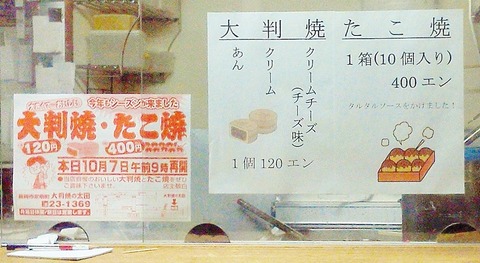 今年もシーズンが来ました
大判焼・たこ焼
120円
400円
本日10月7日午前9時再開
大判焼の太田
大判焼
あん
クリーム
クリームチーズ
(チーズ味)
1個120エン
たこ焼
1箱(10個入り)
400エン
タルタルソースをかけました!